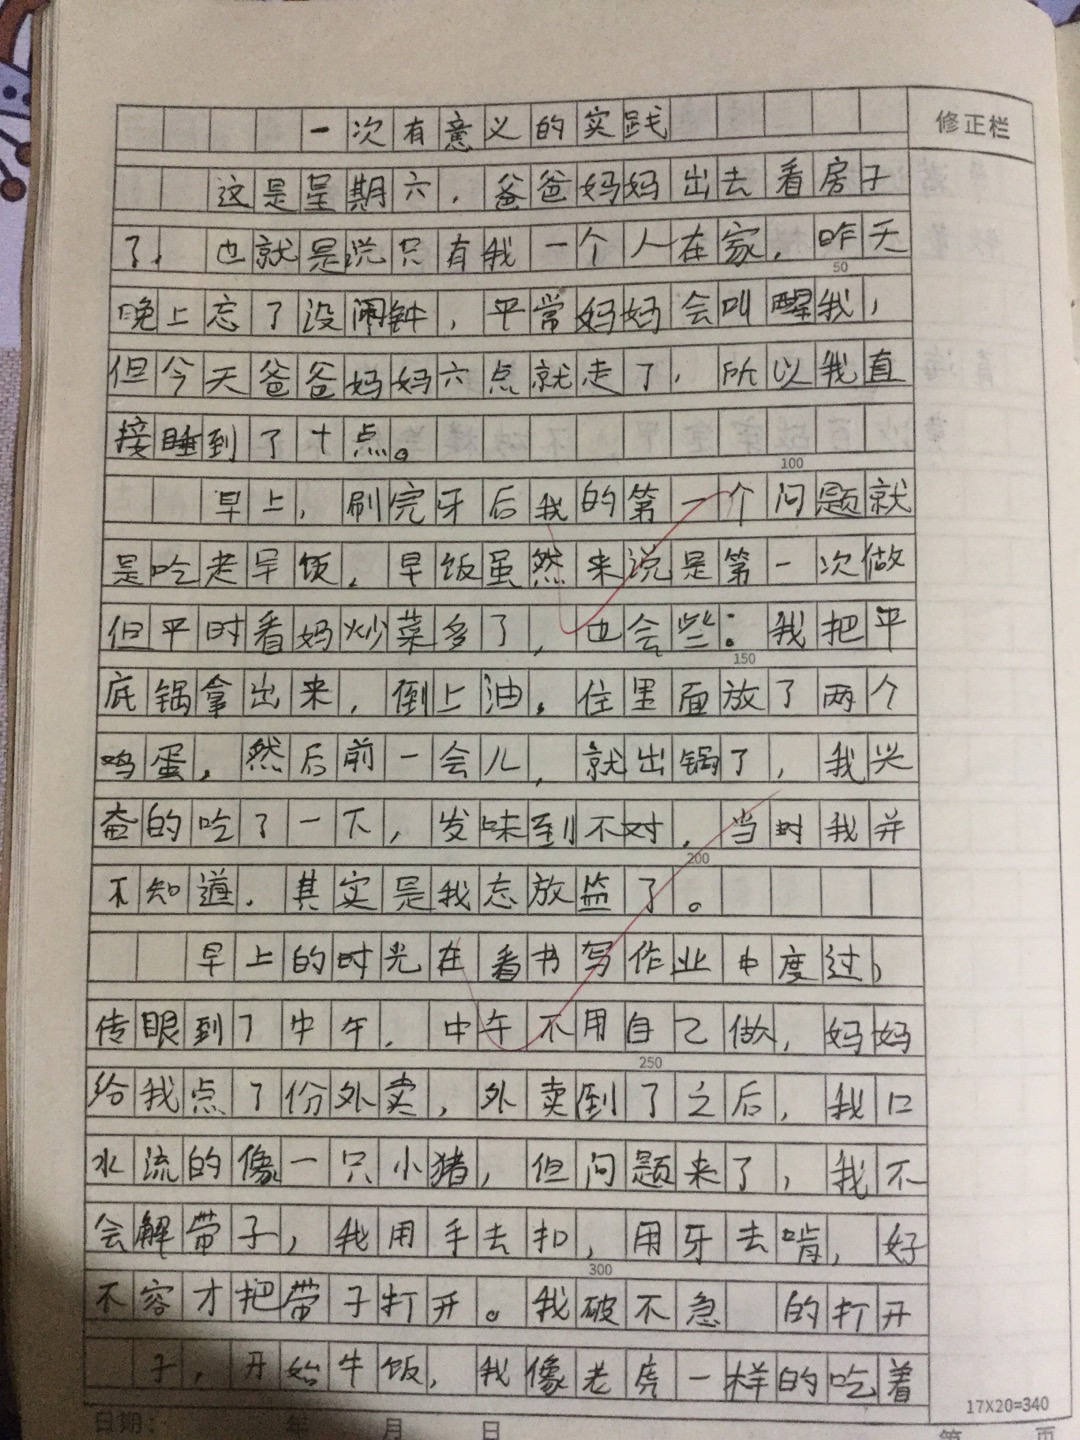 一次有意义的实践
修正栏
这是星期六，爸爸妈妈出去看房子
了，也就是说只有我一个人在家，昨天
50
晚上忘了没闹钟，平常妈妈会叫醒我，
但今天爸爸妈妈六点就走了，所以我直
接睡到了十点。
100
早上，刷完牙后我的第一个问题就
是吃老早饭，早饭虽然来说是第一次做
但平时看妈炒菜多了，也会些：我把平
150
底锅拿出来，倒上油。住里面放了两个
鸡蛋，然后前一会儿，就出锅了，我兴
奋的吃了一下，发味到不对，当时我并
200
不知道．其实是我忘放监了。
早上的时光在看书写作业中度过，
传眼到了中午．中午不用自己做，妈妈
250
给我点了份外卖，外卖到了之后，我口
水流的像一只小猪，但问题来了，我不
会解带子，我用手去扣，用牙去啃，好
300
不容才把带子打开。我破不急 的打开
子，开始牛饭，我像老虎一样的吃着
17X20=340
日期： 年 月 日
第 页